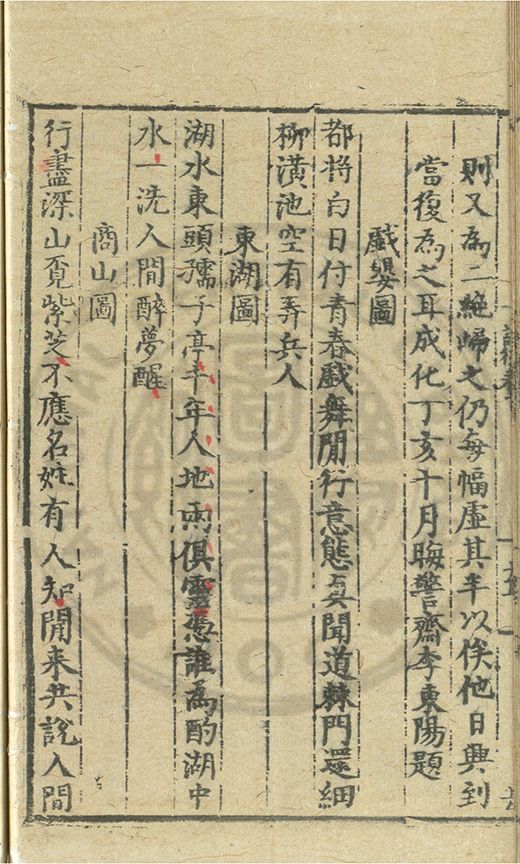 則又為二絶歸之仍每幅虛其半以俟他日興到
當復為之耳成化丁亥十月晦警齋李東陽題
戲嬰圖
都将白日付青春戲舞閒行意態真聞道棘門還細
柳潢池空有弄兵人
東湖圖
湖水東頭孺子亭千年人地兩俱靈憑誰為酌湖中
水一洗人間醉夢醒
商山圖
行盡深山覔紫芝不應名姓有人知閒来共說人間